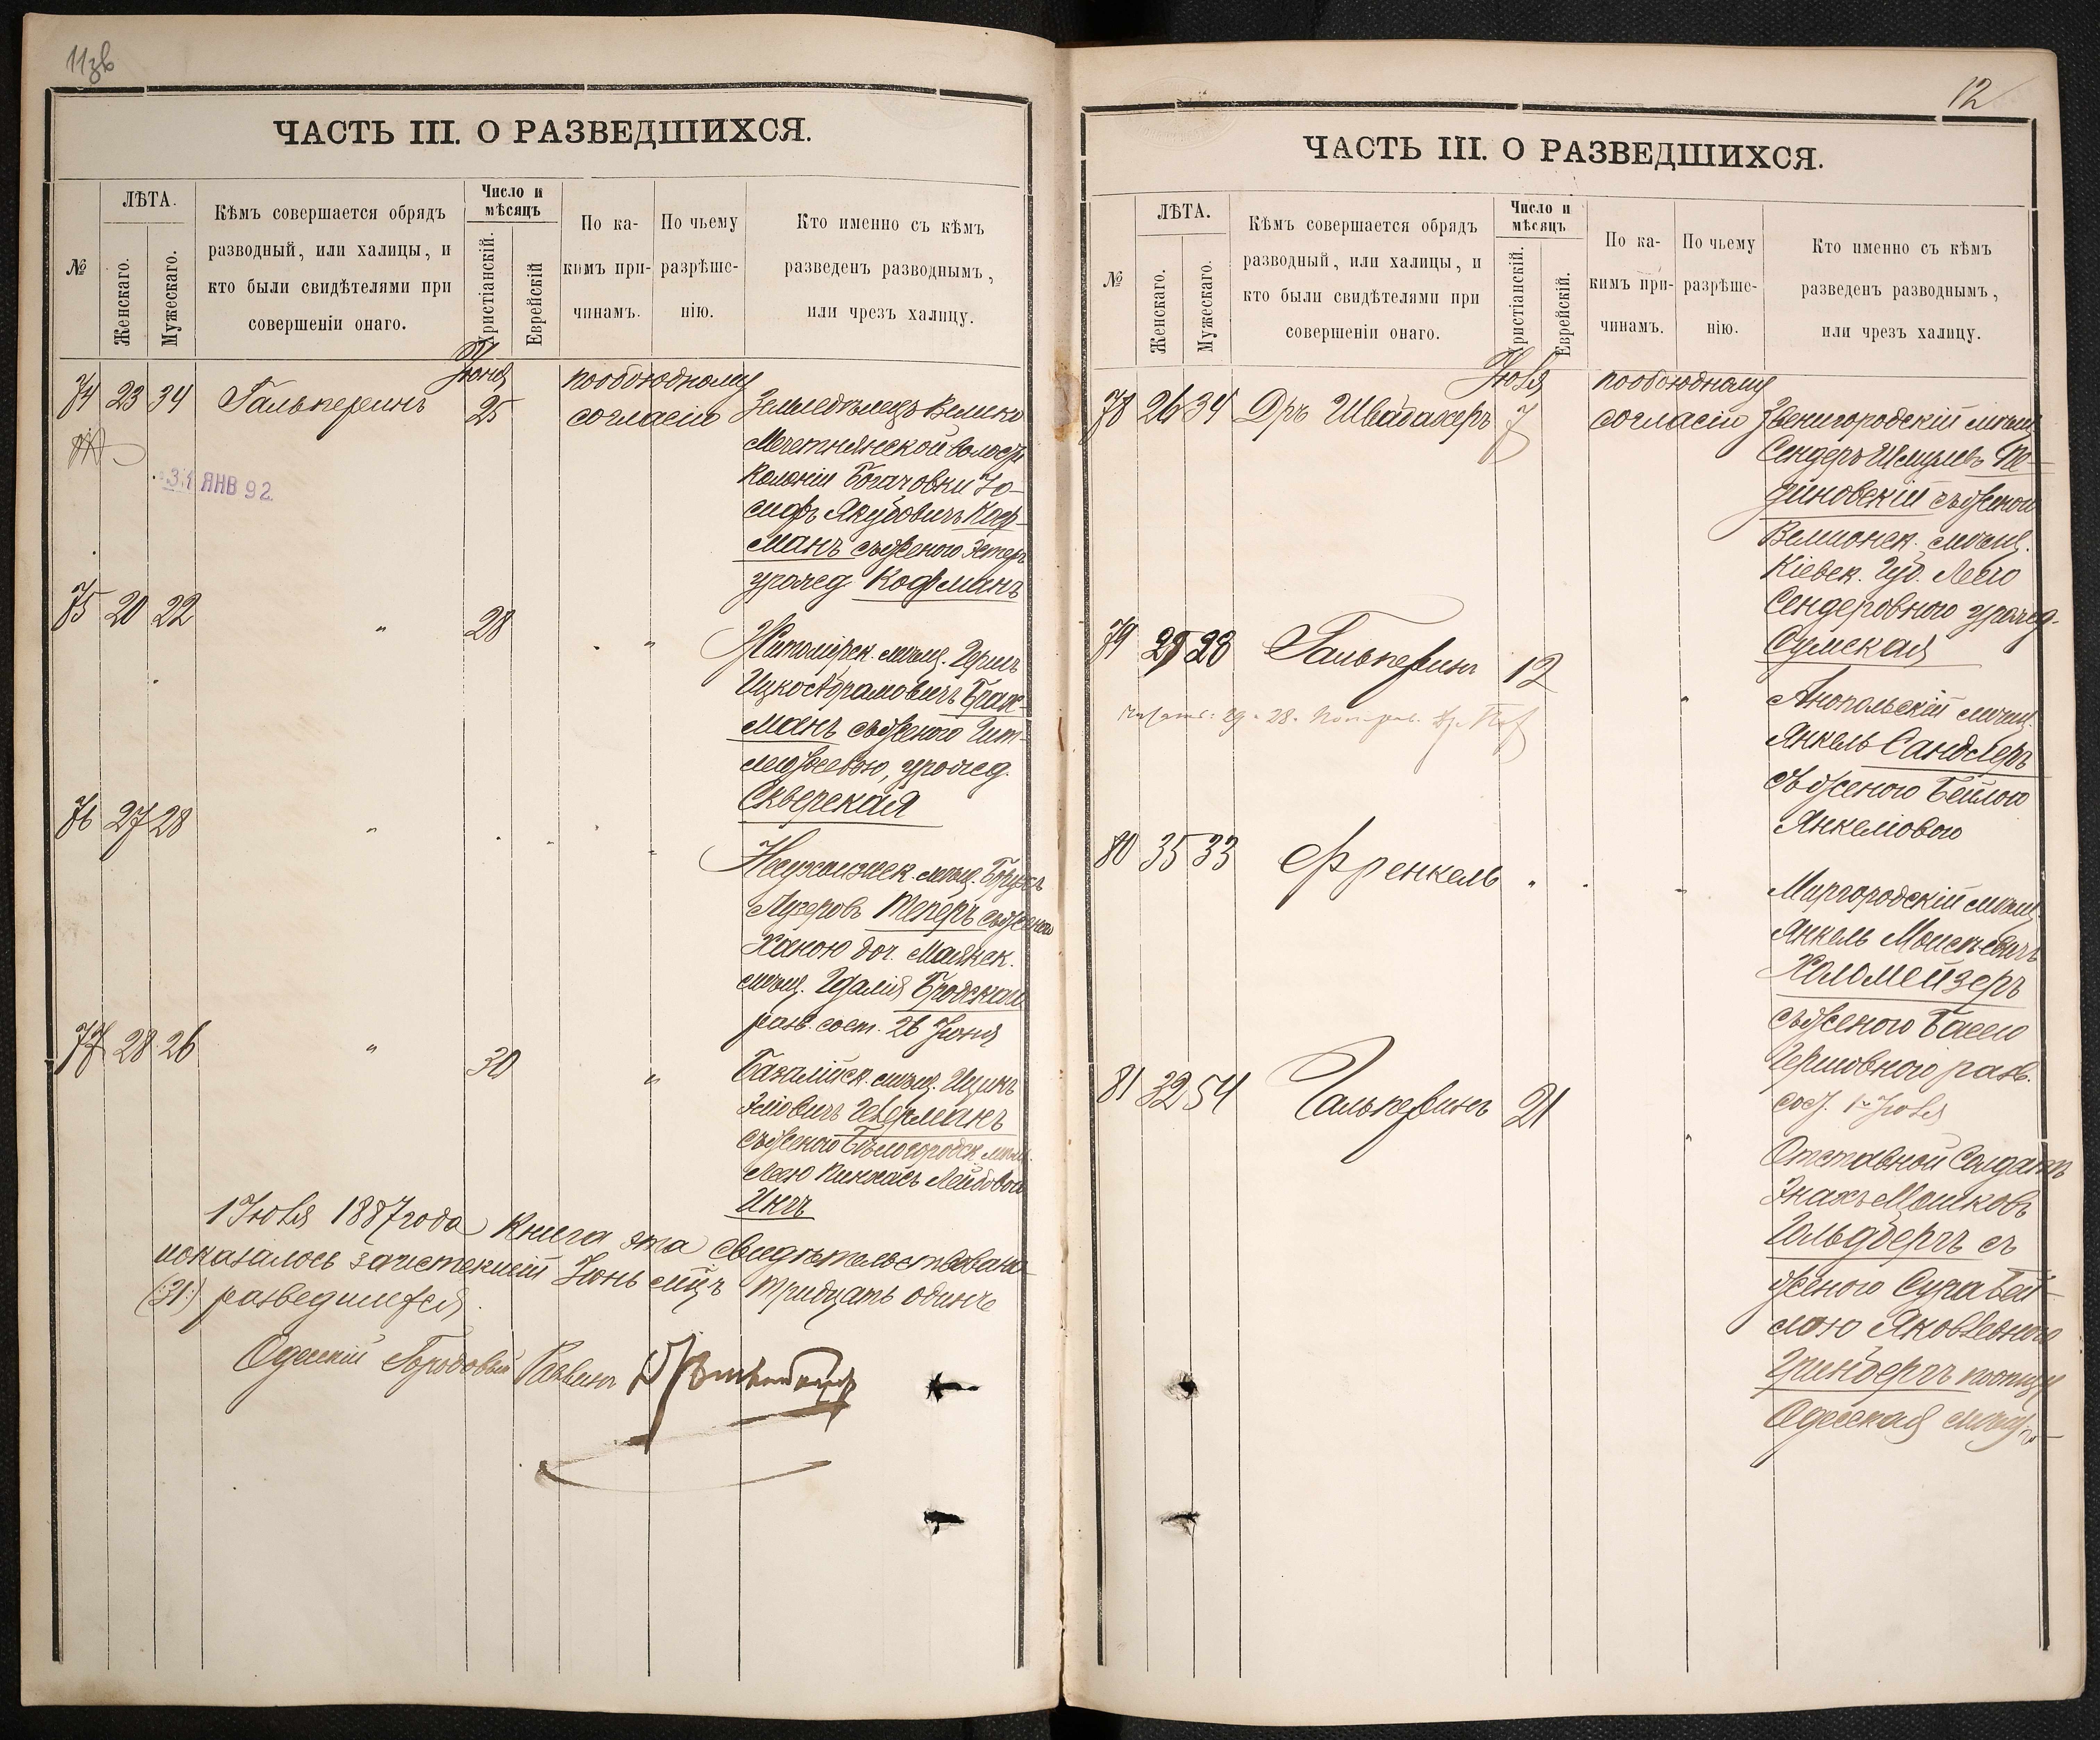 11зв
ЧАСТЬ III. О РАЗВЕДШИХСЯ.
№
ЛѢТА.
Женскаго.
Мужескаго.
Кѣмъ совершается обрядъ
разводный, или халицы, и
кто были свидѣтелями при
совершеніи онаго.
Число и
мѣсяцъ
Христіанскій.
Еврейскій
По ка-
кимъ при-
чинамъ.
По чьему
разрѣше-
нію.
Кто именно съ кѣмъ
разведенъ разводнымъ,
или чрезъ халицу.
74 23 34 Гальперинъ
Іюня
25
пообоюдному
согласію
Земледѣлецъ Велико
Мечетнянской волости
Колоніи Богачовки Іо-
сифъ Якубовичъ Коф-
манъ съ женою Эстеръ
урожд Кофманъ
31 ЯНВ 92
75 20 22 " 28 "
Житомірск. мѣщ. Герш
Ицко Абрамовичъ Брах-
манъ съ женою Гит-
лею, урожд.
Скверская
76 27 28 " "
мѣщ. Борухъ
Лузеровъ Теперъ съ женою
Ханою доч. Маякск.
мѣщ. Гдалія Бродскаго
разв. сост. 26 Іюня
77 28 26 " 30 "
мѣщ. Ицикъ
съ женою мѣщ.
Леею Пинхасъ Лейбовою
1 Іюля 1887 года Книга эта свидѣтельствована
показалось за истекшій Іюнь мцъ тридцать одинъ
(31) разведшихся.
Одесскій Городовый Раввинъ
12
ЧАСТЬ III. О РАЗВЕДШИХСЯ.
№
ЛѢТА.
Женскаго.
Мужескаго.
Кѣмъ совершается обрядъ
разводный, или халицы, и
кто были свидѣтелями при
совершеніи онаго.
Число и
мѣсяцъ
Христіанскій.
Еврейскій.
По ка-
кимъ при-
чинамъ.
По чьему
разрѣше-
нію.
Кто именно съ кѣмъ
разведенъ разводнымъ,
или чрезъ халицу.
78 26 34 Дръ Швабахеръ
Іюля
7
пообоюдному
согласію
Звенигородскій мѣщ.
Сендеръ Шмулевъ Ме-
диновскій съ женою
мѣщ.
Кіевск. Губ. Леею
Сендеровною урожд.
Сумская
79 29 28 Гальперинъ 12 "
читать: 29. 28.
Анопольскій мѣщ.
Янкель Сандлеръ
съ женою Бейлою
Янкелівою
80 35 33 Френкель " "
Миргородскій мѣщ.
Янкель Моисѣевичъ
Холомейзеръ
съ женою Басею
Гершовною разв.
сост. 1го Іюля
81 32 54 Гальперинъ 21 "
Отставной Солдатъ
Энахъ Мошковъ
Гольдбергъ съ
женою Сура Бей-
лою Яковлевною
Гринбергъ
Одесская мѣщ.